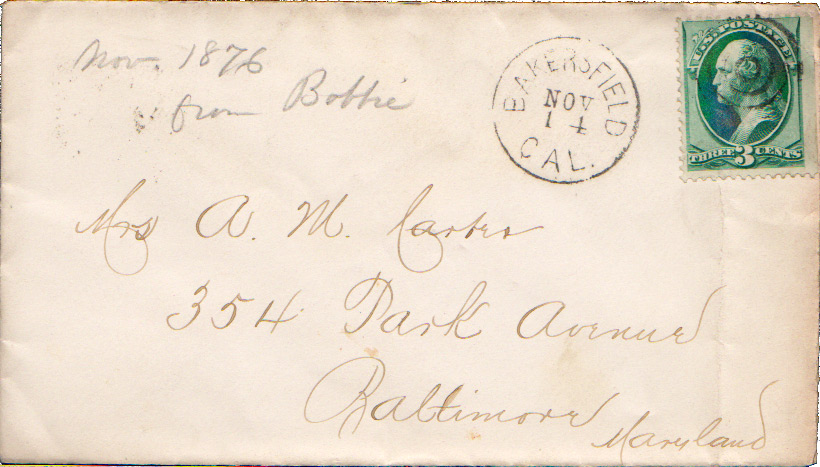 Nov. 1876
from Bobbie
BAKERSFIELD
NOV
14
CAL.
U.S. POSTAGE
THREE 3 CENTS
Mrs A. M. Carter
354 Park Avenue
Baltimore
Maryland